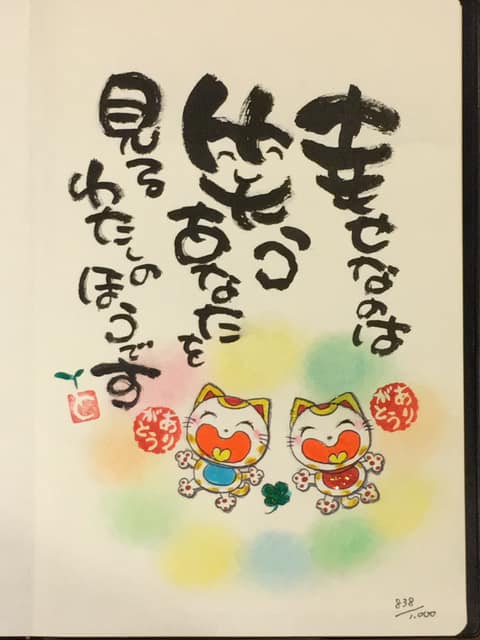 幸せなのは
笑う
あなたを
見る
わたしのほうです
ありがとう
ありがとう
838/1,000